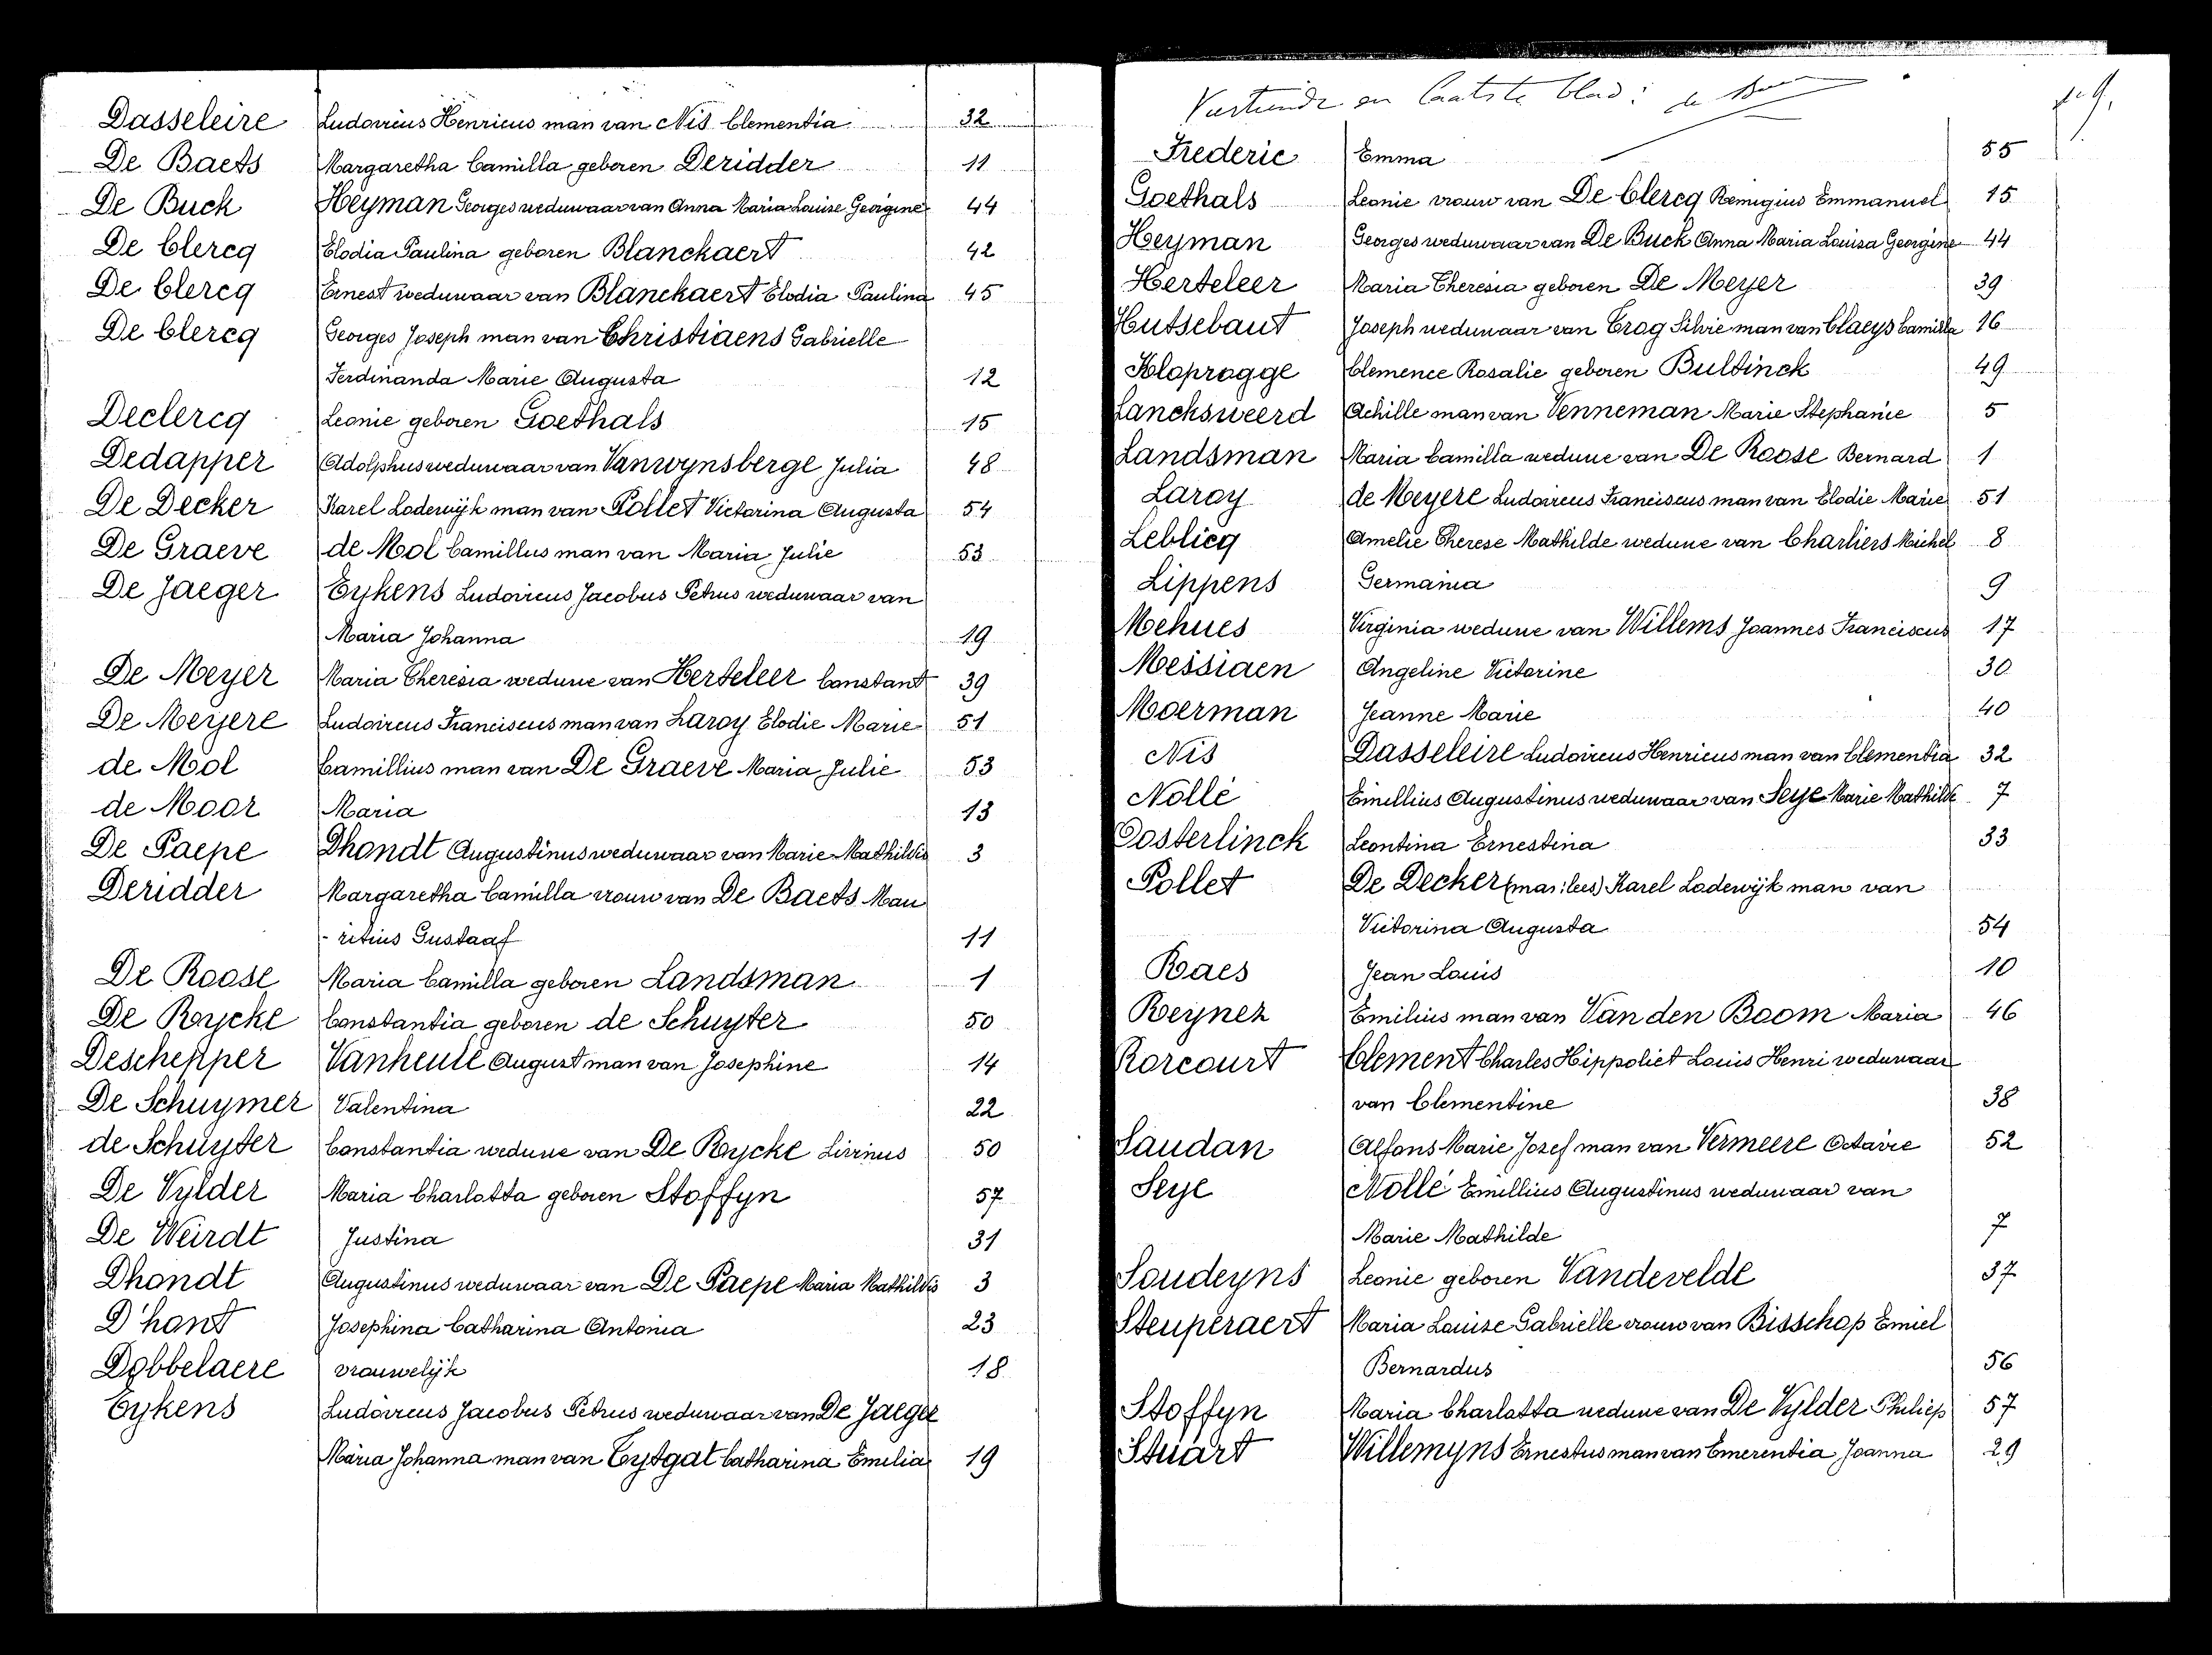 Dasseleire Ludovicus Henricus man van Nis Clementia 32
De Baets Margaretha Camilla geboren Deridder 11
De Buck Heyman Georges weduwaar van Anna Maria Louise Georgine 44
De Clercq Elodia Paulina geboren Blanckaert 42
De Clercq Ernest weduwaar van Blanckaert Elodia Paulina 45
De Clercq Georges Joseph man van Christiaens Gabrielle
Ferdinanda Marie Augusta 12
Declercq Leonie geboren Goethals 15
Dedapper Adolphus weduwaar van Vanwynsberge Julia 48
De Decker Karel Lodewijk man van Pollet Victorina Augusta 54
De Graeve de Mol Camillus man van Maria Julie 53
De Jaeger Eykens Ludovicus Jacobus Petrus weduwaar van
Maria Johanna 19
De Meyer Maria Theresia weduwe van Herteleer Constant 39
De Meyere Ludovicus Franciscus man van Laroy Elodie Marie 51
de Mol Camillius man van De Graeve Maria Julie 53
de Moor Maria 13
De Paepe Dhondt Augustinus weduwaar van Marie Mathildis 3
Deridder Margaretha Camilla vrouw van De Baets Mau
- ritius Gustaaf 11
De Roose Maria Camilla geboren Landsman 1
De Rycke Constantia geboren de Schuyter 50
Deschepper Vanheule August man van Josephine 14
De Schuymer Valentina 22
de Schuyter Constantia weduwe van De Rycke Livinus 50
De Vylder Maria Charlotta geboren Stoffyn 57
De Weirdt Justina 31
Dhondt Augustinus weduwaar van De Paepe Maria Mathildis 3
D'hont Josephina Catharina Antonia 23
Dobbelaere vrouwelijk 18
Eykens Ludovicus Jacobus Petrus weduwaar van De Jaeger
Maria Johanna man van Tytgat Catharina Emilia 19
en laatste blad:
Frederic Emma 55
Goethals Leonie vrouw van De Clercq Remigius Emmanuel 15
Heyman Georges weduwaar van De Buck Anna Maria Louisa Georgine 44
Herteleer Maria Theresia geboren De Meyer 39
Hutsebaut Joseph weduwaar van Trog Silvie man van Claeys Camilla 16
Kloprogge Clemence Rosalie geboren Bultinck 49
Lancksweerd Achille man van Venneman Marie Stephanie 5
Landsman Maria Camilla weduwe van De Roose Bernard 1
Laroy de Meyere Ludovicus Franciscus man van Elodie Marie 51
Leblicq Amelie Therese Mathilde weduwe van Charliers Michel 8
Lippens Germania 9
Mehues Virginia weduwe van Willems Joannes Franciscus 17
Messiaen Angeline Victorine 30
Moerman Jeanne Marie 40
Nis Dasseleire Ludovicus Henricus man van Clementia 32
Nollé Emillius Augustinus weduwaar van Seye Marie Mathilde 7
Oosterlinck Leontina Ernestina 33
Pollet De Decker (mas: lees) Karel Lodewijk man van
Victorina Augusta 54
Raes Jean Louis 10
Reynez Emilius man van Van den Boom Maria 46
Rorcourt Clement Charles Hippoliet Louis Henri weduwaar
van Clementine 38
Saudan Alfons Marie Jozef man van Vermeere Octavie 52
Seye Nollé Emillius Augustinus weduwaar van
Marie Mathilde 7
Soudeyns Leonie geboren Vandevelde 37
Steuperaert Maria Louise Gabrielle vrouw van Bisschop Emiel
Bernardus 56
Stoffyn Maria Charlotta weduwe van De Vylder Philiep 57
Stuart Willemyns Ernestus man van Emerentia Joanna 29